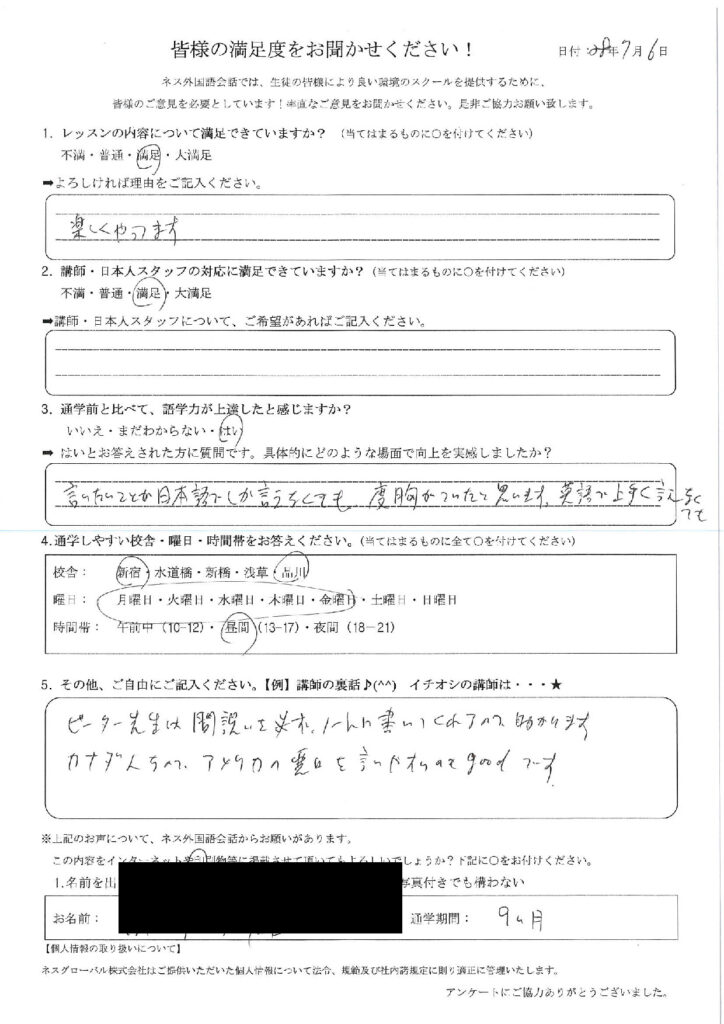 皆様の満足度をお聞かせください！
日付 28年7月6日
ネス外国語会話では、生徒の皆様により良い環境のスクールを提供するために、
皆様のご意見を必要としています！率直なご意見をお聞かせください。是非ご協力お願い致します。
1．レッスンの内容について満足できていますか？（当てはまるものに○を付けてください）
不満・普通・満足・大満足
➡よろしければ理由をご記入ください。
楽しくやってます
2．講師・日本人スタッフの対応に満足できていますか？（当てはまるものに○を付けてください）
不満・普通・満足・大満足
➡講師・日本人スタッフについて、ご希望があればご記入ください。
3．通学前と比べて、語学力が上達したと感じますか？
いいえ・まだわからない・はい
➡ はいとお答えされた方に質問です。具体的にどのような場面で向上を実感しましたか？
言いたいことが日本語でしか言えなくても、度胸がついたと思います。英語で上手く言えなくても
4.通学しやすい校舎・曜日・時間帯をお答えください。（当てはまるものに全て○を付けてください）
校舎： 新宿・水道橋・新橋・浅草・品川
曜日： 月曜日・火曜日・水曜日・木曜日・金曜日・土曜日・日曜日
時間帯： 午前中（10-12）・昼間（13-17）・夜間（18－21）
5．その他、ご自由にご記入ください。【例】講師の裏話♪(^^) イチオシの講師は・・・★
ピーター先生は間違いを必ず、ノートに書いてくれるので助かります
カナダ人なので、アメリカの悪口を言いやすいのもgoodです
※上記のお声について、ネス外国語会話からお願いがあります。
この内容をインターネットや印刷物等に掲載させて頂いてもよろしいでしょうか？下記に○をお付けください。
1.名前を出 写真付きでも構わない
お名前： 通学期間： 9ヵ月
【個人情報の取り扱いについて】
ネスグローバル株式会社はご提供いただいた個人情報について法令、規範及び社内諸規定に則り適正に管理いたします。
アンケートにご協力ありがとうございました。